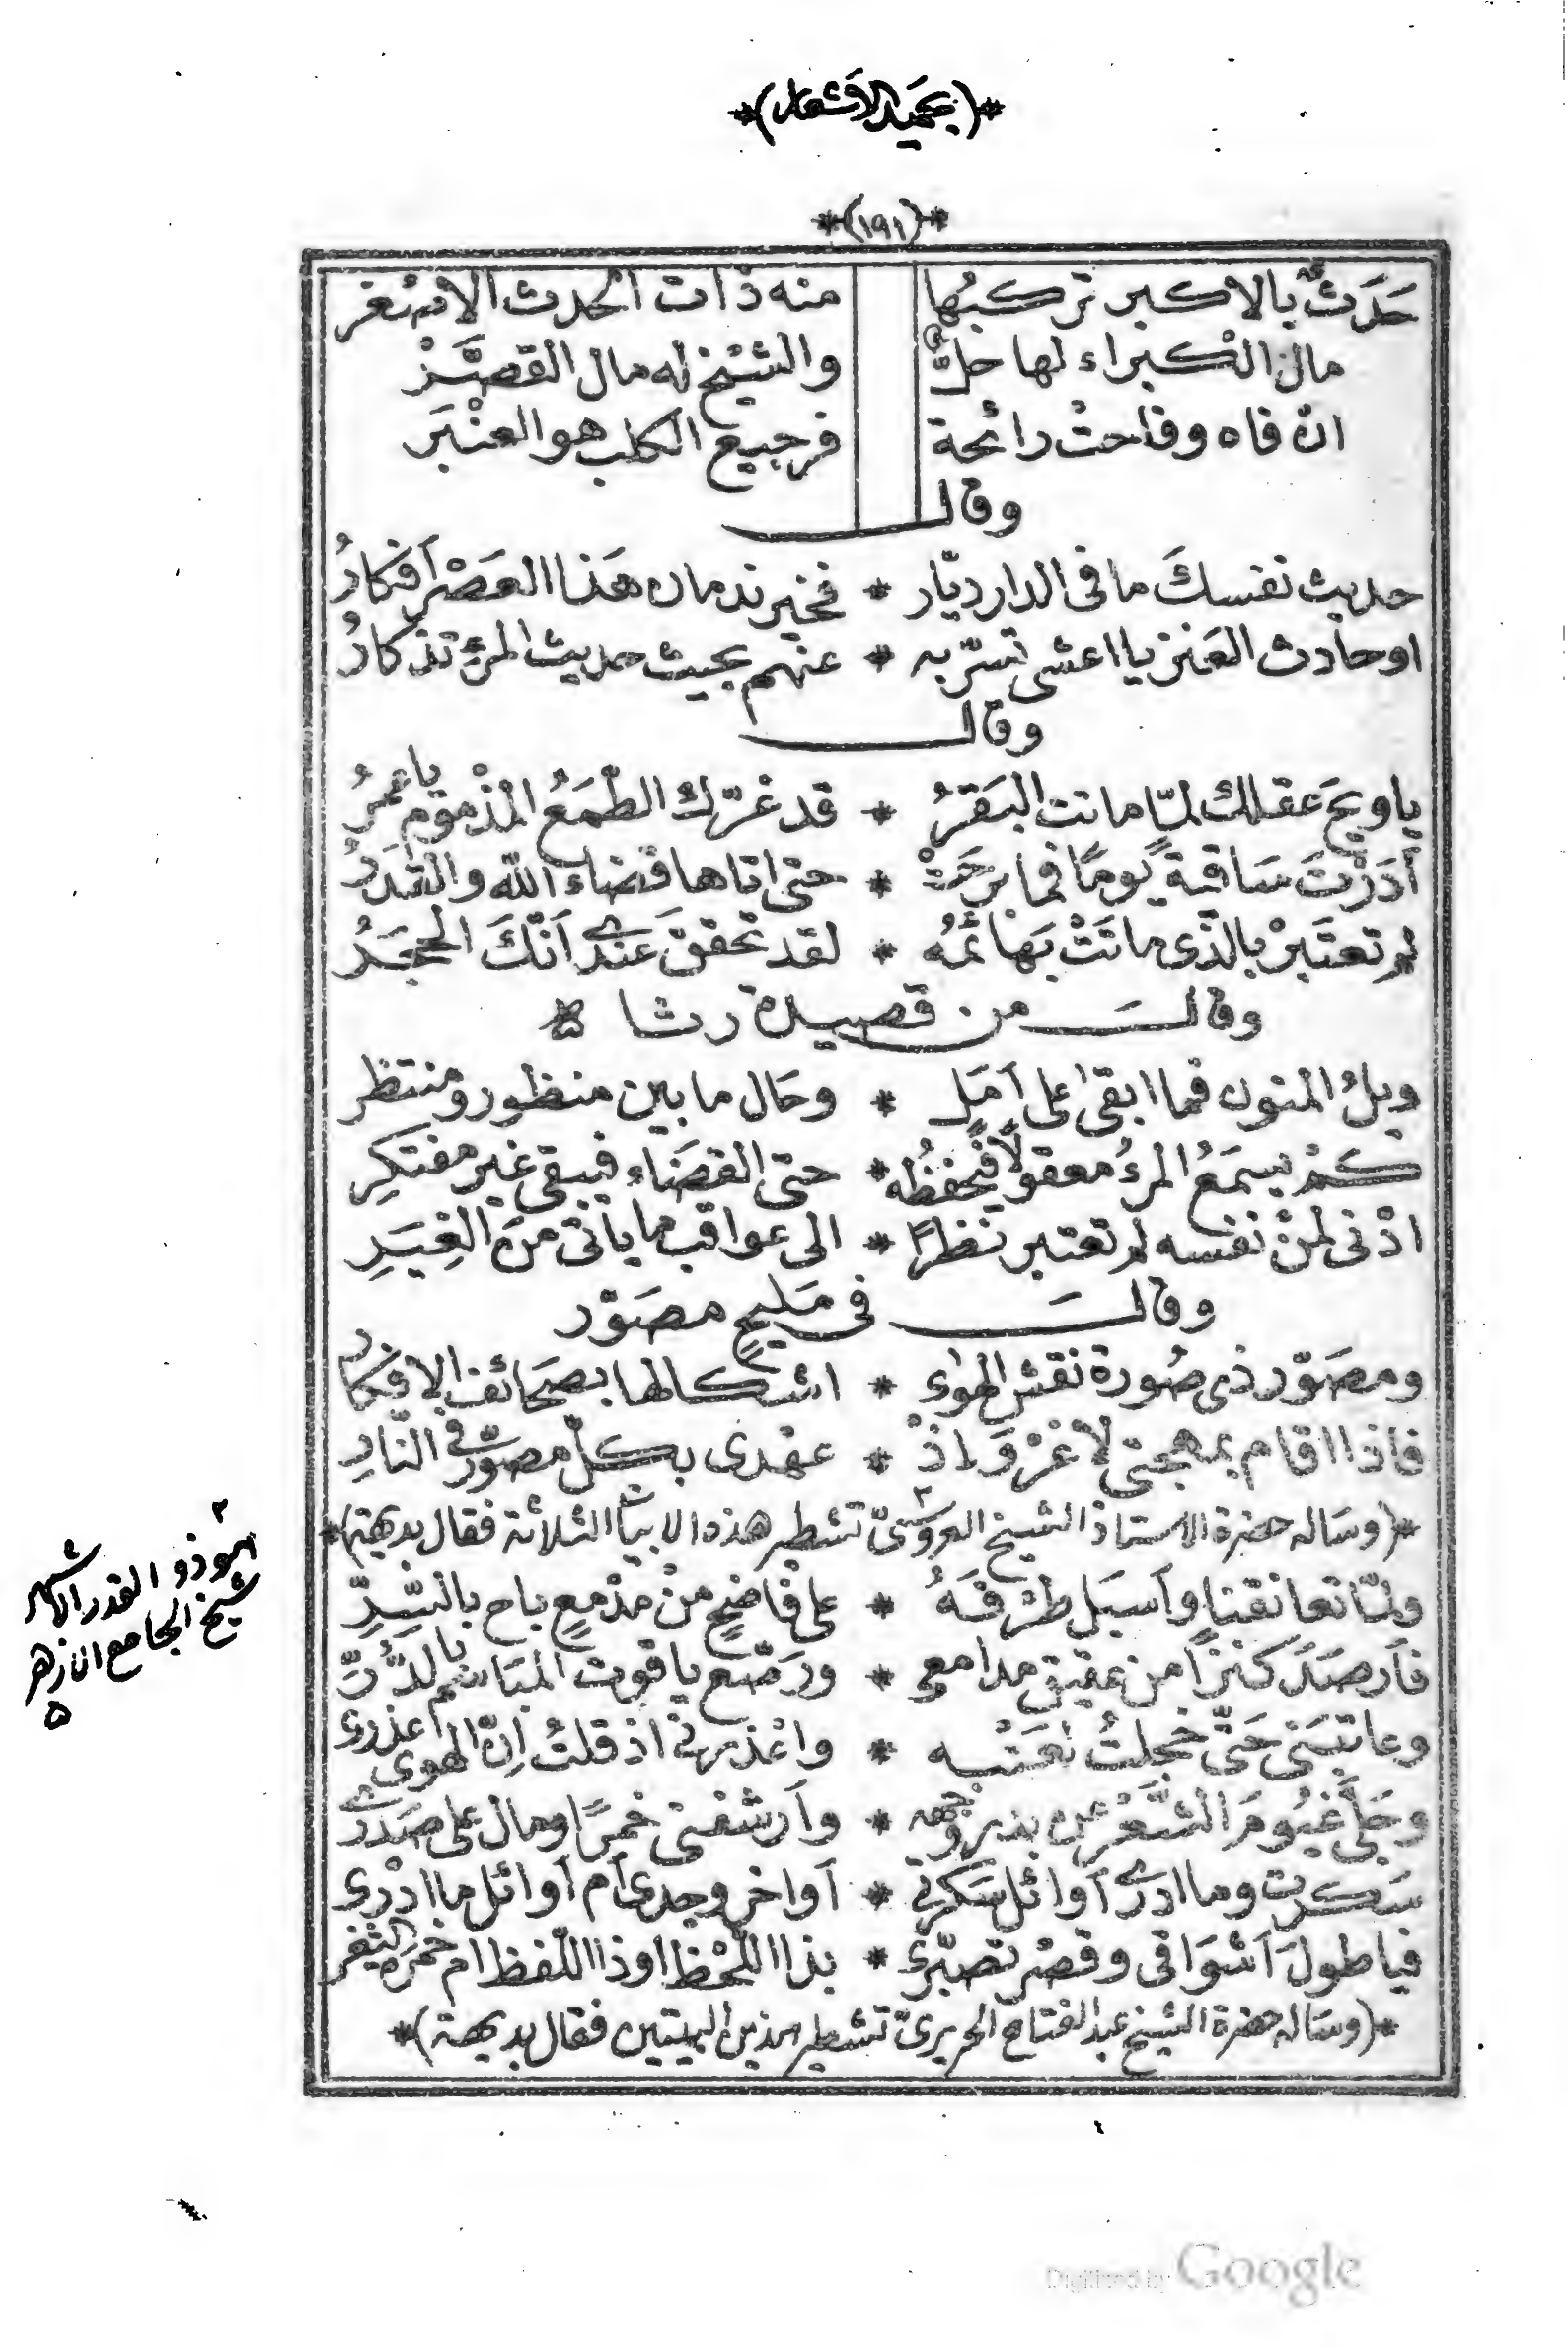 *(بحميد الاشعار)*
*(١٩١)*
حَدَثٌ بالاكبر تركبُها منه ذات الحدث الاصغر
مال الكبراء لها حلٌّ والشيخ له مال القصَّر
ان فاه وفاحت رائحة فرجيع الكلب هو العنْبَر
وقال
حديث نفسك ما فى الدار ديّار * فخير ندمان هَذا العَصْر أفكارُ
او حادث العَنز يا اعشى تسرّ به * عنهم بحيث حديث المرء تذكارُ
وقال
يا ويحَ عقلك لمّا ماتت البَقَرُ * قد غرّك الطّمَعُ المذْموم يا غمرُ
أدَرْتَ سَاقية يومًا فما برحَتْ * حتى اتاها قضاء الله والقَدَرُ
لم تعتَبرْ بالذى ماتَتْ بَهَائمُهُ * لقد تحققَ عندى اَنّكَ الحجَرُ
وقالَ من قصيدة رثا
ويلُ المنون فما ابقى على اَمَلٍ * وحَال ما بين منظور ومنتظر
كمْ يسمَعُ المرءُ معقولًا فيحفظُه * حتى القضَاء فيبقى غير مفتكِرِ
اذْنى لمنْ نفسه لم تعتبر نظرًا * الى عواقب ما ياتى منَ الغِيَرِ
وقالَ فى مَليحٍ مصَوّر
ومصَوّر ذى صُورة نقش الهوى * اشكالها بصَحَائف الافكار
فاذا اقام بمهجتى لا غرْوَ اذْ * عهْدى بكلّ مصوّر فى النّارِ
*(وسَاله حضرة الاستاذ الشيخ العروسىّ ٢ تشطير هذه الابيات الثلاثة فقال بديهة)*
ولمّا تعانقنا واَسبَل طرْفَهُ * على فاضحٍ منْ مدْمعٍ باح بالسِّرِّ
فأرصَدَ كنزًا من عقيق مدامعى * ورَصّع ياقوت المبَاسم بالدُّرِّ
وعاتبَنى حَتّى خجلتُ لعَتْبه * واعْذرنى اذ قلتُ اِنّ الهوى عذرى
وجَلّى غيُومَ الشَّعْر عن بدر وجهه * واَرشفنى خمرًا ومال على صَدرى
سَكرت وما ادرى آوائل سَكرتى * اَواخر وجدى اَم اَوائل ما ادْرى
فيا طولَ اَشوَاقى وقصْر تصَبّرى * بذا اللّحْظ او ذا اللّفظ ام خمرَة الثغر
*(وسَاله حضرة الشيخ عبد الفتاح الحريرىّ تشطير هذين البيتين فقال بديهة)*
٢
هو ذو القدر الاشهر
شيخ الجامع الازهر
Digitized by Google